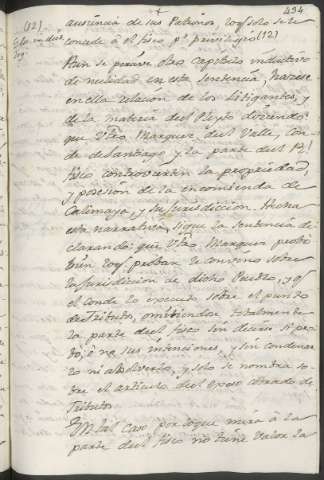 494
(12)
ausencia de sus Patrones, which solo se le
concede à el fisco pr. privilegio (12)
Aun se percive otro capitulo inductivo
de nulidad en esta sentencia, hacese
en ella relacion de los litigantes, y
de la materia del Pleyto diciendo:
que Vtro Marques del Valle, con-
de de Santiago y la parte del Rl
fisco controvertian la propriedad,
y posesion de la encomienda de
Calimaya, y su jurisdiccion. Hecha
esta narrativa, sigue la sentencia de-
clarando: que Vtro Marques probó
bien
la jurisdiccion de dicho Pueblo, y
el conde lo opuesto sobre el punto
de tributos, omitiendo totalmente
la parte del fisco sin decir si pro-
bó, ò no sus intenciones, y sin condenar-
lo ni absolverlo, y solo se nombra so-
bre el articulo del exceso cobrado de
Tributos
En tal caso por lo que mira à la
parte del fisco no tiene valor la